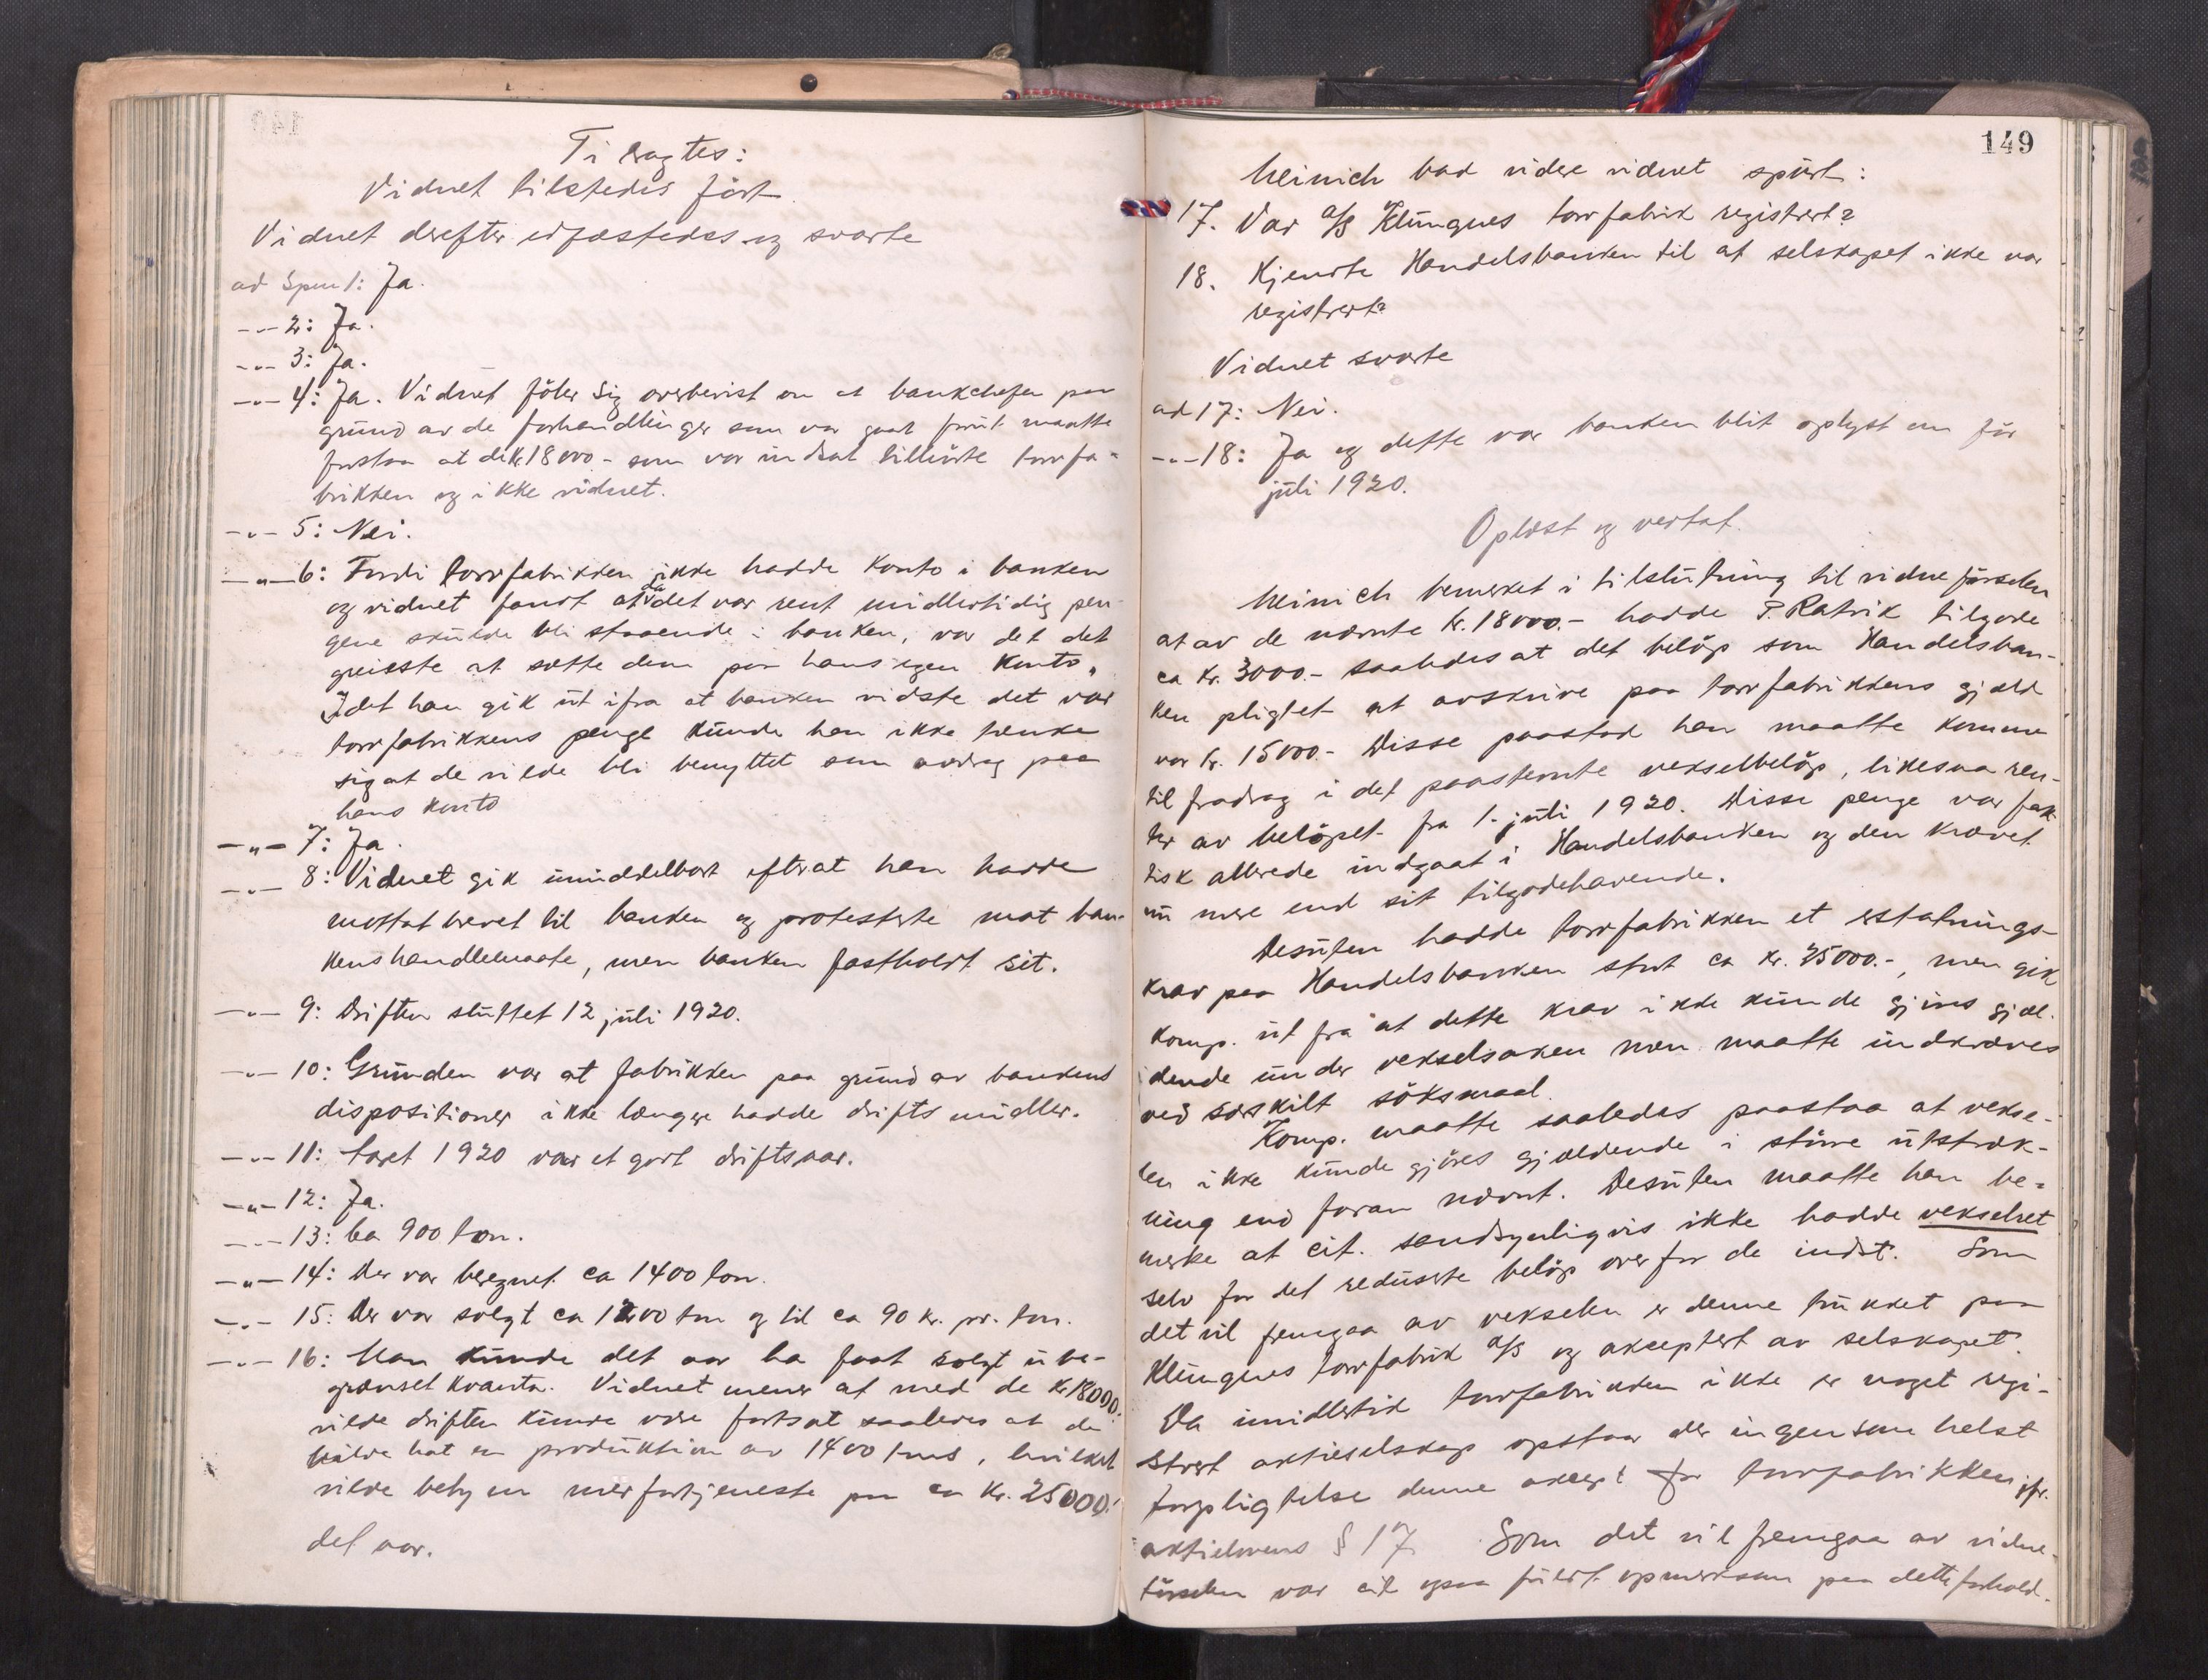 Ti eragtes:
Vidnet tilstedes ført
Vidnet derefter edfæstedes og svarte
ad Spm 1: Ja.
-"- 2: Ja.
-"- 3: Ja.
-"- 4: Ja. Vidnet föler sig overbevist om at bankchefen paa
grund av de forhandlinger som var gaat forut maatte
forstaa at de Kr. 18 000.- som var indsat tilhörte torvfa-
brikken og ikke vidnet.
-"- 5: Nei.
-"- 6: Fordi torvfabrikken ikke hadde konto i banken
og vidnet fandt at da det var rent midlertidig pen-
gene skulde bli staaende i banken, var det det
greieste at sætte dem paa hans egen konto.
Idet han gik ut ifra at banken vidste det var
torvfabrikkens penge kunde han ikke tænke
sig at de vilde bli benyttet som avdrag paa
hans konto
-"- 7: Ja.
-"- 8: Vidnet gik umiddelbart efterat han hadde
mottat brevet til banken og protesterte mot ban-
kens handlemaate, men banken fastholdt sit.
-"- 9: Driften sluttet 12 juli 1920.
-"- 10: Grunden var at fabrikken paa grund av bankens
dispositioner ikke længere hadde driftsmidler.
-"- 11: Aaret 1920 var et godt driftsaar.
-"- 12: Ja.
-"- 13: Ca 900 ton.
-"- 14: Der var beregnet ca 1400 ton.
-"- 15: Der var solgt ca 1200 ton og til ca 90 kr. pr. ton.
-"- 16: Man kunde det aar ha faat solgt ube-
grænset kvanta. Vidnet mener at med de kr 18000.-
vilde driften kunde være fortsat saaledes at de
hadde hat en produktion av 1400 tons, hvilket
vilde bety en merfortjeneste paa ca Kr. 25000.-
det aar.
149
Meinich bad videre vidnet spurt:
17. Var A/S Klungnes torvfabrik registrert?
18. Kjendte Handelsbanken til at selskapet ikke var
registrert?
Vidnet svarte
ad 17: Nei.
-"- 18: Ja og dette var banken blit oplyst om för
juli 1920.
Oplæst og vedtat.
Meinich bemerket i tilslutning til vidneförselen
at av de nævnte kr. 18000.- hadde P. Ratvik tilgode
ca kr. 3000.- saaledes at det belöp som Handelsban-
ken pligtet at avskrive paa torvfabrikkens gjæld
var kr. 15000.- Disse paastod han maatte komme
til fradrag i det paastevnte vekselbelöp, likesaa ren-
ter av belöpet fra 1. juli 1920. Disse penge var fak-
tisk allerede indgaat i Handelsbanken og den krævet
nu mere end sit tilgodehavende.
Desuten hadde torvfabrikken et erstatnings-
krav paa Handelsbanken stort ca kr. 25000.-, men gik
komp. ut fra at dette krav ikke kunde gjöres gjæl-
dende under vekselsaken men maatte indkræves
ved særskilt söksmaal.
Komp. maatte saaledes paastaa at vekse-
len ikke kunde gjöres gjældende i större utstræk-
ning end foran nævnt. Desuten maatte han be-
merke at cit. sandsynligvis ikke hadde vekselret
selv for det reduserte belöp overfor de indst. Som
det vil fremgaa av vekselen er denne trukket paa
Klungnes torvfabrik A/S og akseptert av selskapet.
Da imidlertid torvfabrikken ikke er noget regi-
strert aktieselskap opstaar der ingensomhelst
forpligtelse denne aksept for torvfabrikken jfr.
aktielovens § 17. Som det vil fremgaa av vidne-
förselen var cit ogsaa fuldt opmerksom paa dette forhold.